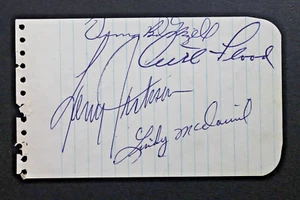 Mizell
Curt Flood
Larry Jackson
Lindy McDaniel